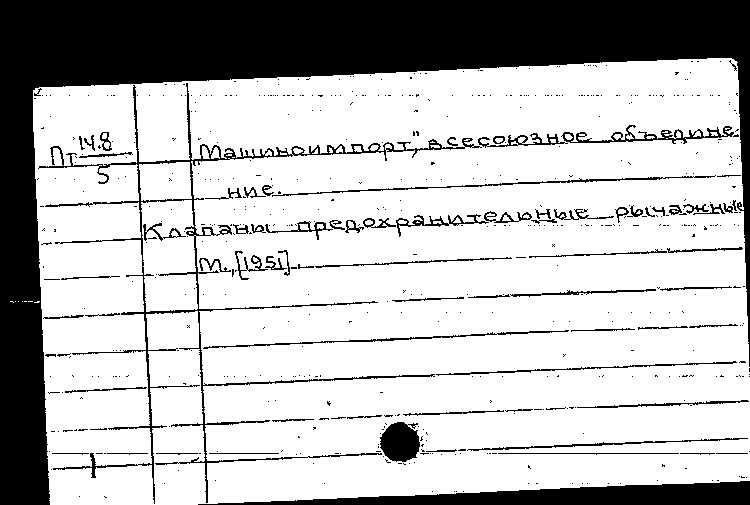 Пт 14.8
5
„Машиноимпорт," всесоюзное объедине
ние.
Клапаны предохранительные рычажные
М., [1951].
1